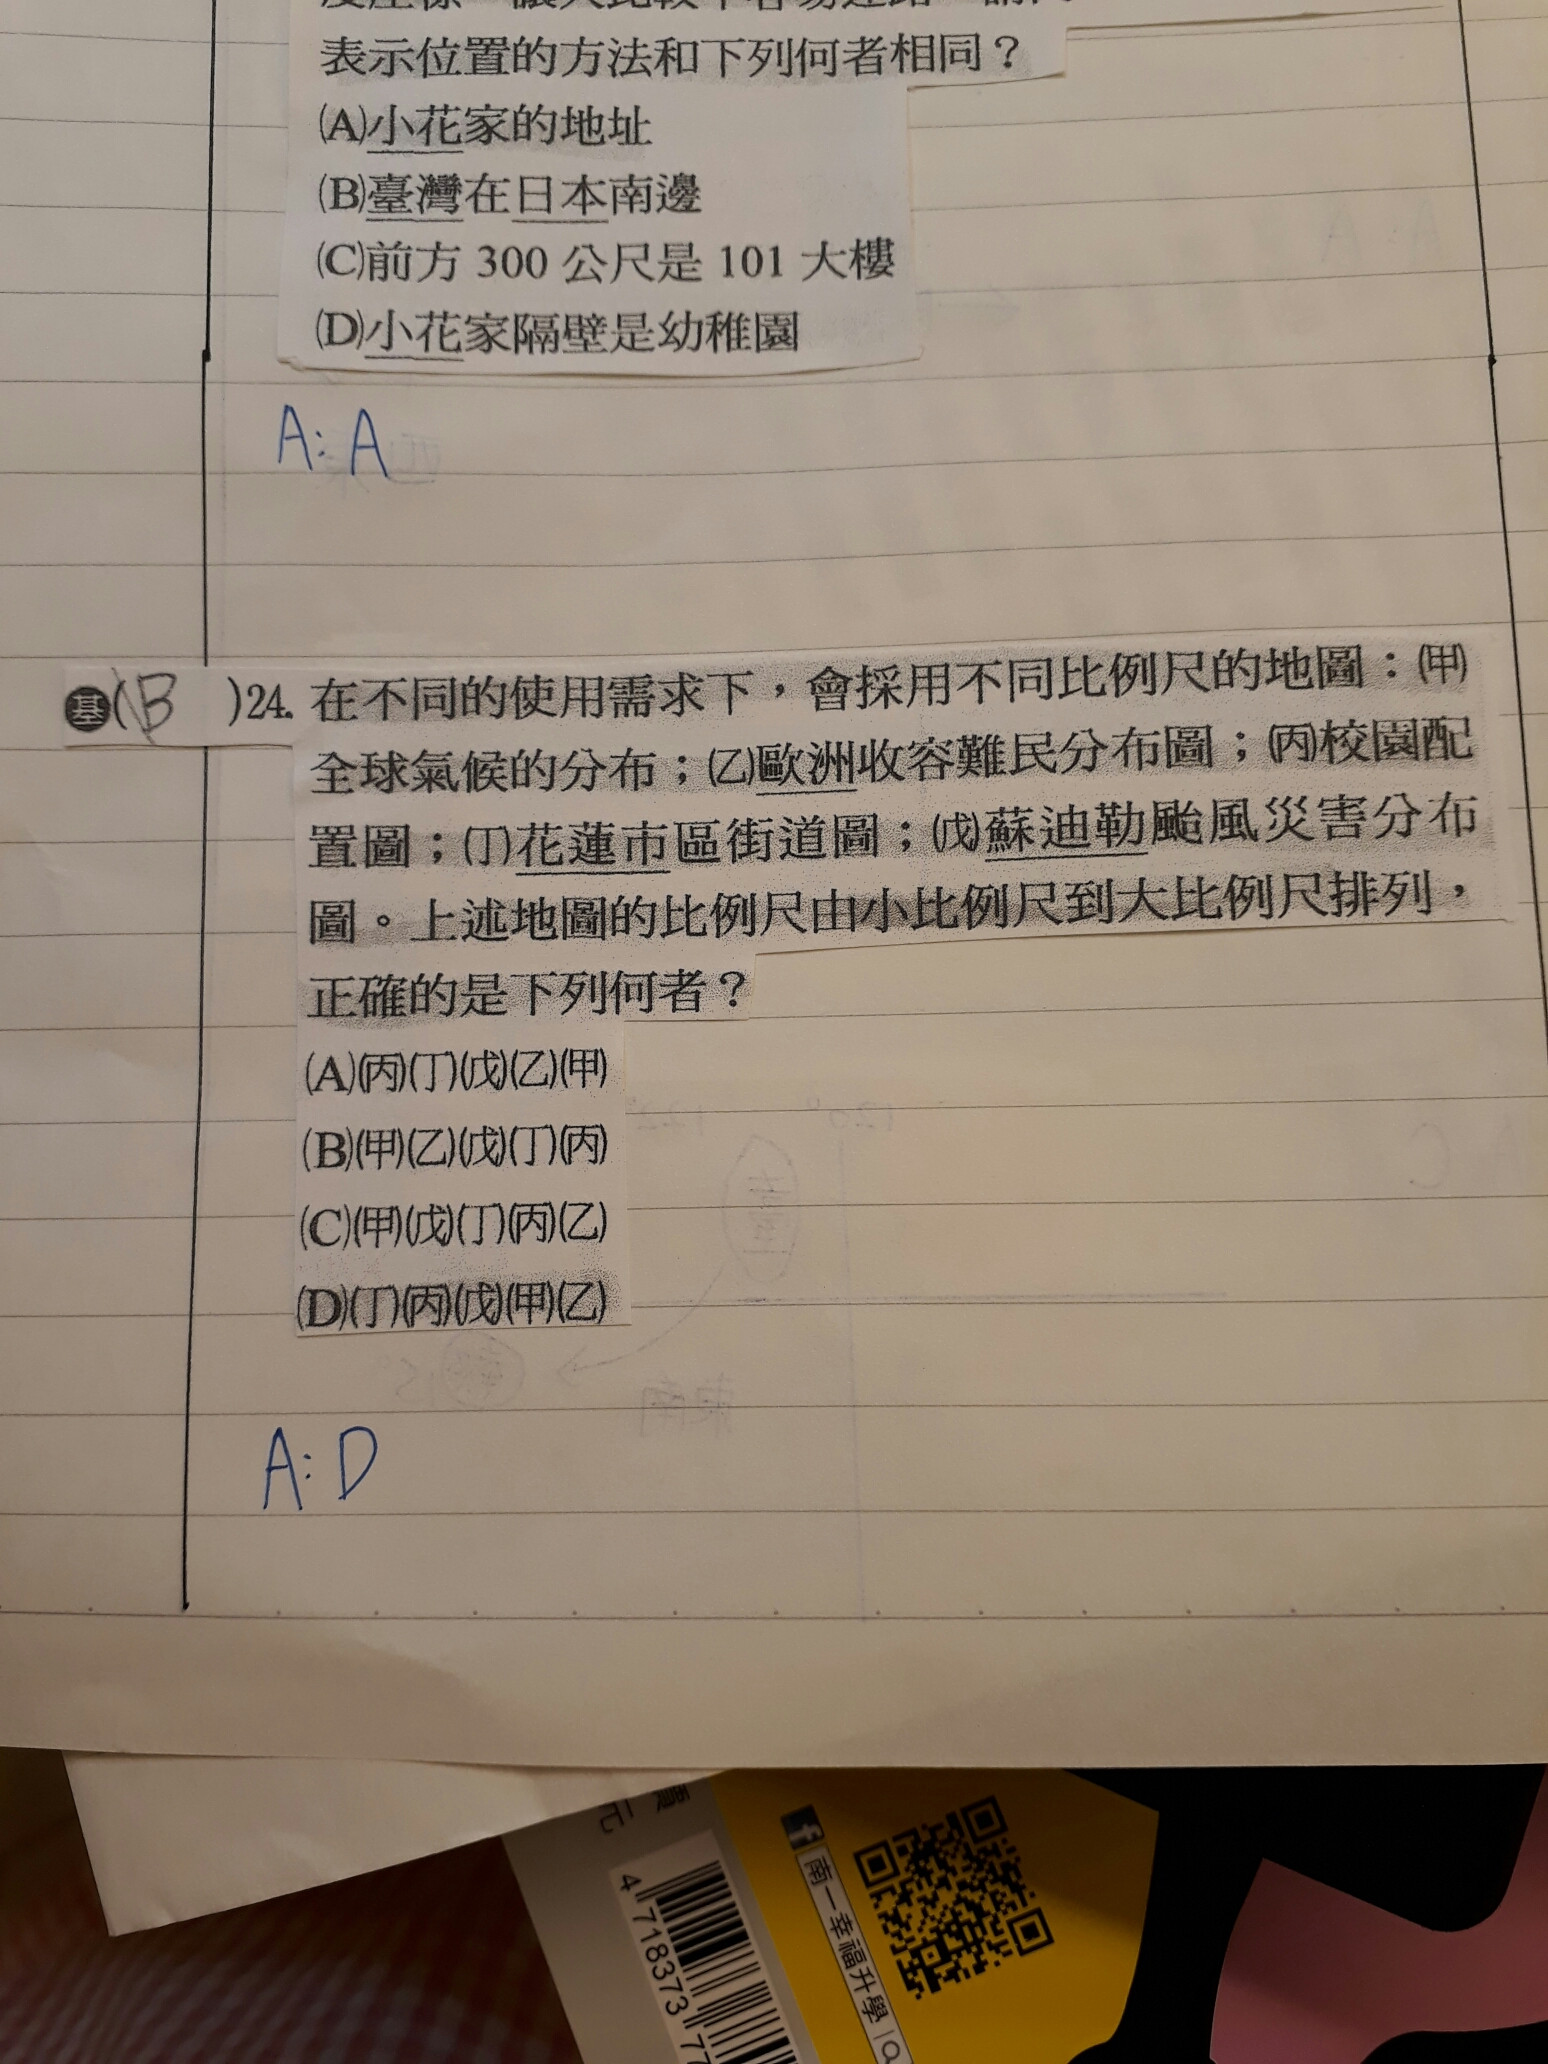 表示位置的方法和下列何者相同？
(A)小花家的地址
(B)臺灣在日本南邊
(C)前方 300 公尺是 101 大樓
(D)小花家隔壁是幼稚園
A: A
基( B )24. 在不同的使用需求下，會採用不同比例尺的地圖：(甲)
全球氣候的分布；(乙)歐洲收容難民分布圖；(丙)校園配
置圖；(丁)花蓮市區街道圖；(戊)蘇迪勒颱風災害分布
圖。上述地圖的比例尺由小比例尺到大比例尺排列，
正確的是下列何者？
(A)(丙)(丁)(戊)(乙)(甲)
(B)(甲)(乙)(戊)(丁)(丙)
(C)(甲)(戊)(丁)(丙)(乙)
(D)(丁)(丙)(戊)(甲)(乙)
A: D
南一幸福升學
4 718373 77